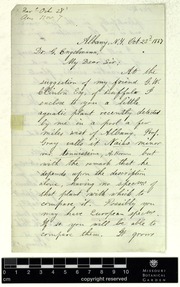 Albany, N.Y. Oct. 25th 1857
Dr. G. Engelmann,
My Dear Sir;
At the
suggestion of my friend G. W.
Clinton Esq. of Buffalo I
enclose to you a little
aquatic plant recently detected
by me in a pool a few
miles west of Albany. Prof.
Gray calls it Naias minor
but
with the remark that he
depends upon the description
alone, having no specimen
of that plant with which to
compare it. Possibly you
may have European specimens
so you will be able to
compare them. It grows
MISSOURI
BOTANICAL
GARDEN